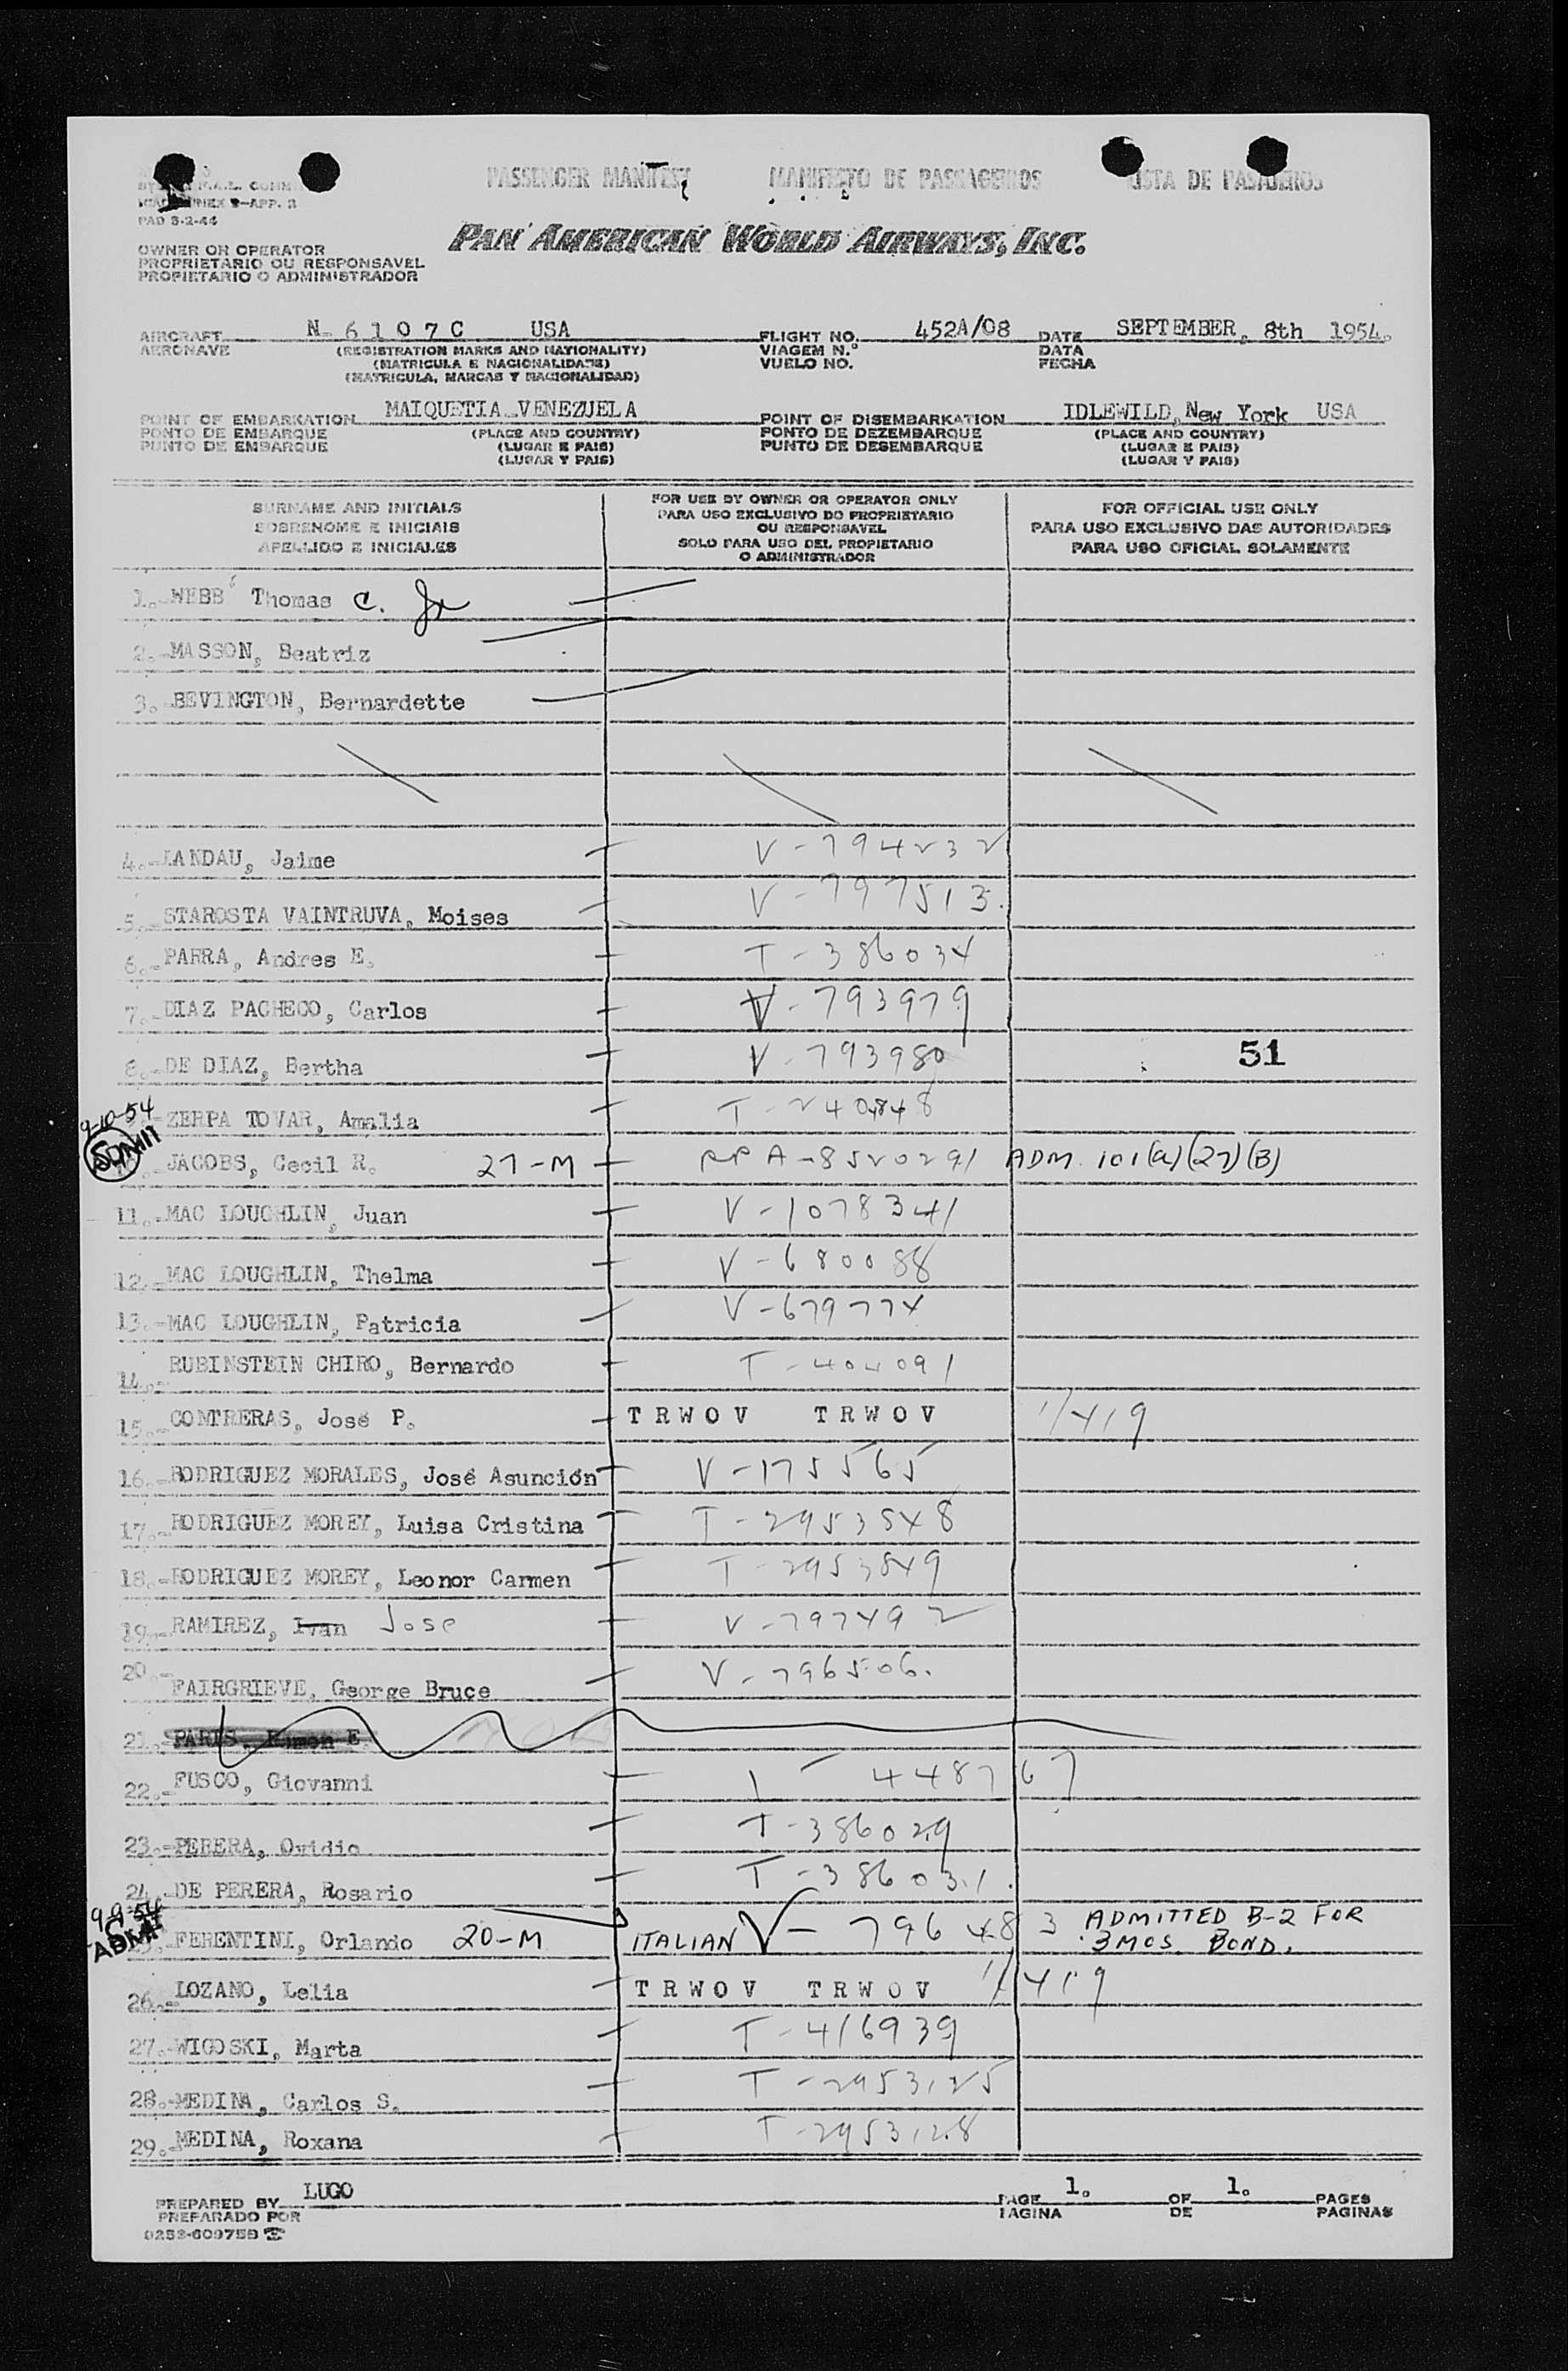 PASSENGER MANIFEST MANIFESTO DE PASSAGEIROS LISTA DE PASAJEROS
PAD 3-2-44
PAN AMERICAN WORLD AIRWAYS, INC.
OWNER OR OPERATOR
PROPRIETARIO OU RESPONSAVEL
PROPIETARIO O ADMINISTRADOR
AIRCRAFT N- 6 1 0 7 C USA FLIGHT NO. 452A/08 DATE SEPTEMBER, 8th 1954.
AERONAVE (REGISTRATION MARKS AND NATIONALITY) VIAGEM N.º DATA
(MATRICULA E NACIONALIDADE) VUELO NO. FECHA
(MATRICULA, MARCAS Y NACIONALIDAD)
POINT OF EMBARKATION MAIQUETIA VENEZUELA POINT OF DISEMBARKATION IDLEWILD, New York USA
PONTO DE EMBARQUE (PLACE AND COUNTRY) PONTO DE DEZEMBARQUE (PLACE AND COUNTRY)
PUNTO DE EMBARQUE (LUGAR E PAIS) PUNTO DE DESEMBARQUE (LUGAR E PAIS)
(LUGAR Y PAIS) (LUGAR Y PAIS)
SURNAME AND INITIALS
SOBRENOME E INICIAIS
APELLIDO E INICIALES
FOR USE BY OWNER OR OPERATOR ONLY
PARA USO EXCLUSIVO DO PROPRIETARIO
OU RESPONSAVEL
SOLO PARA USO DEL PROPIETARIO
O ADMINISTRADOR
FOR OFFICIAL USE ONLY
PARA USO EXCLUSIVO DAS AUTORIDADES
PARA USO OFICIAL SOLAMENTE
1.- WEBB Thomas C. Jr
2.- MASSON, Beatriz
3.- BEVINGTON, Bernardette
4.- LANDAU, Jaime V-794232
5.- STAROSTA VAINTRUVA, Moises V-797513.
6.- PARRA, Andres E. T-386034
7.- DIAZ PACHECO, Carlos V-793979
8.- DE DIAZ, Bertha V-793980 51
9-10-54 ZERPA TOVAR, Amalia T-240848
JACOBS, Cecil R. 27-M RPA-8520291 ADM. 101(a)(27)(B)
11.- MAC LOUGHLIN, Juan V-1078341
12.- MAC LOUGHLIN, Thelma V-680088
13.- MAC LOUGHLIN, Patricia V-679774
14.- RUBINSTEIN CHIRO, Bernardo T-404091
15.- CONTRERAS, José P. T R W O V T R W O V 11/419
16.- RODRIGUEZ MORALES, José Asunción V-175565
17.- RODRIGUEZ MOREY, Luisa Cristina T-2953848
18.- RODRIGUEZ MOREY, Leonor Carmen T-2953849
19.- RAMIREZ, Ivan Jose V-797492
20.- FAIRGRIEVE, George Bruce V-796506.
21.- PARIS, Ramon E.
22.- FUSCO, Giovanni 448767
23.- PERERA, Ovidio T-386029
24.- DE PERERA, Rosario T-386031.
9-9-54 ADM
25.- FERENTINI, Orlando 20-M ITALIAN V-796483 ADMITTED B-2 FOR
3 MOS. BOND.
26.- LOZANO, Lelia T R W O V T R W O V 11/419
27.- WIGOSKI, Marta T-416939
28.- MEDINA, Carlos S. T-2953125
29.- MEDINA, Roxana T-2953128
PREPARED BY LUGO PAGE 1. OF 1. PAGES
PREPARADO POR PAGINA DE PAGINAS
0253-609758